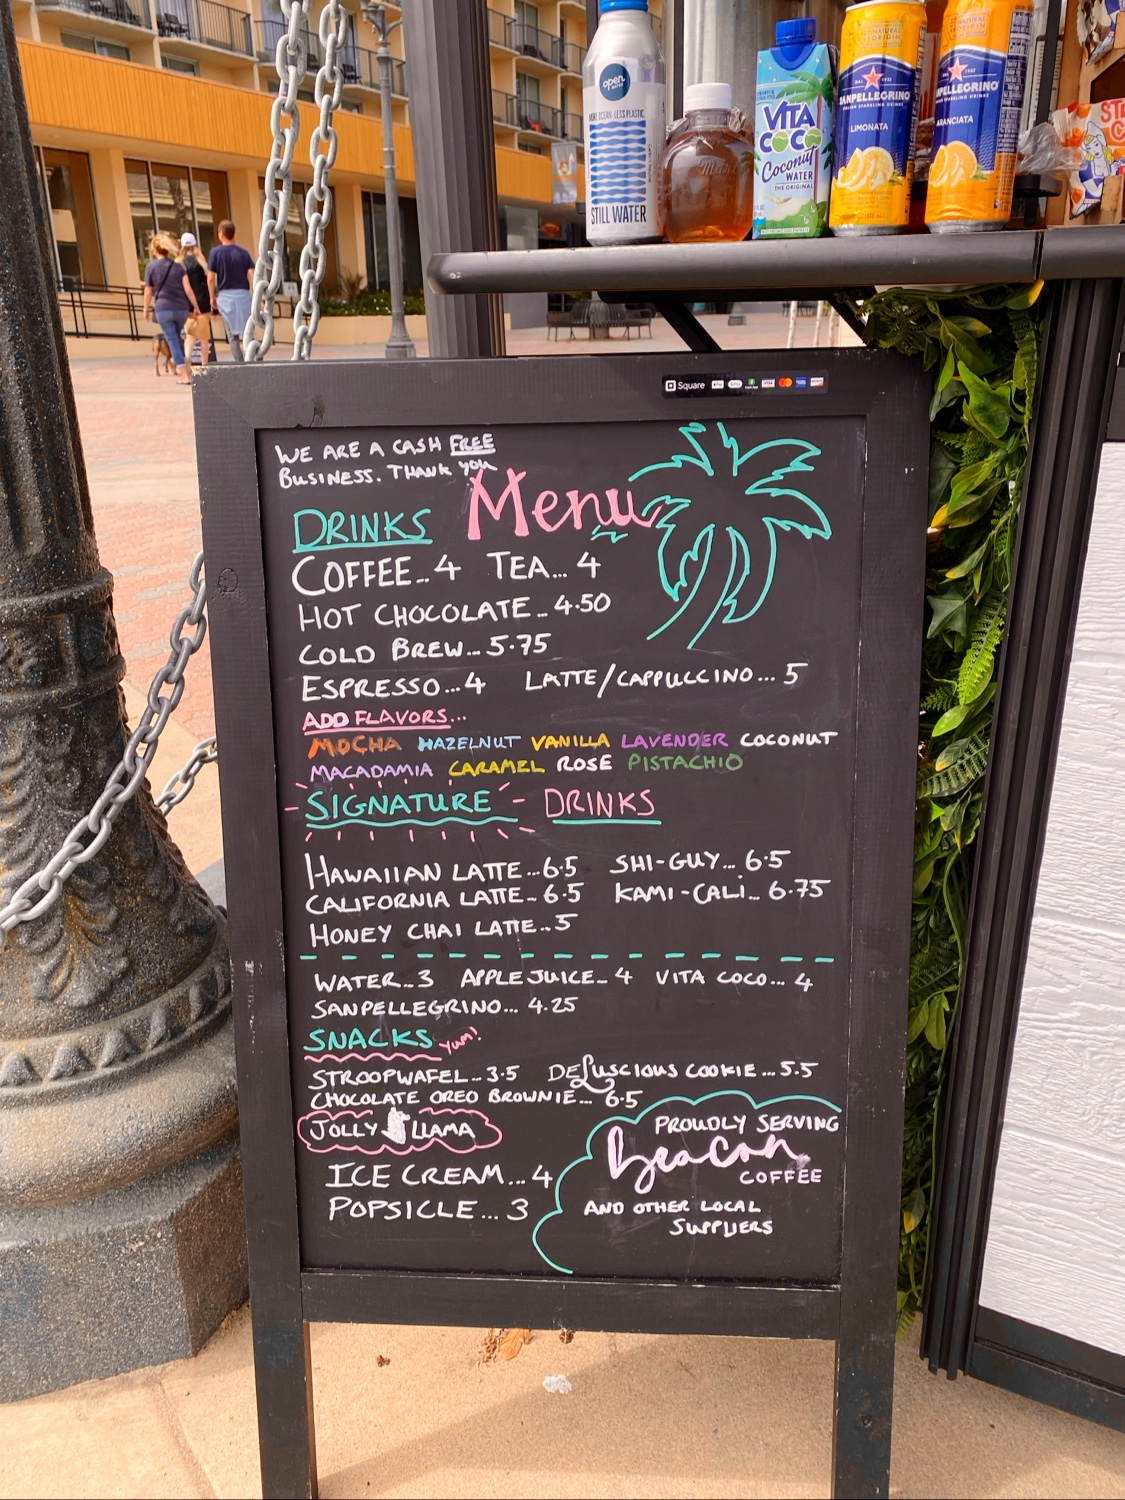 open
WATER
MORE OCEAN. LESS PLASTIC.
STILL WATER
VITA
COCO
Coconut
WATER
THE ORIGINAL
SANPELLEGRINO
LIMONATA
PELLEGRINO
ARANCIATA
Square
WE ARE A CASH FREE
BUSINESS. THANK YOU
Menu
DRINKS
COFFEE...4 TEA...4
HOT CHOCOLATE...4.50
COLD BREW...5.75
ESPRESSO...4 LATTE/CAPPUCCINO...5
ADD FLAVORS...
MOCHA HAZELNUT VANILLA LAVENDER COCONUT
MACADAMIA CARAMEL ROSE PISTACHIO
SIGNATURE - DRINKS
HAWAIIAN LATTE...6.5 SHI-GUY...6.5
CALIFORNIA LATTE...6.5 KAMI-CALI...6.75
HONEY CHAI LATTE...5
WATER...3 APPLE JUICE...4 VITA COCO...4
SANPELLEGRINO...4.25
SNACKS YUM!
STROOPWAFEL...3.5 DELUSCIOUS COOKIE...5.5
CHOCOLATE OREO BROWNIE...6.5
JOLLY LLAMA
ICE CREAM...4
POPSICLE...3
PROUDLY SERVING
Beacon
COFFEE
AND OTHER LOCAL
SUPPLIERS